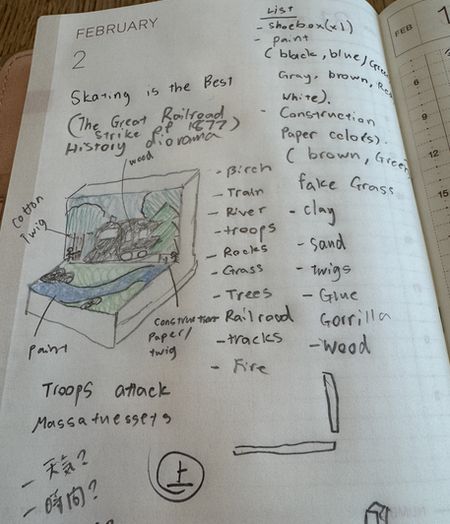 FEBRUARY
2
Skating is the Best
(The Great Railroad
Strike of 1877)
History diorama
wood
Cotton
Twig
Paint
Construction
Paper/
twig
- Birch
- Train
- River
- troops
- Rocks
- Grass
- Trees
- Railroad
- tracks
- Fire
List
- Shoebox (x1)
- paint
(black, blue, Green
Gray, brown, Red
White).
- Construction
Paper colors).
(brown, Green
fake Grass
- clay
- sand
- twigs
- Glue
Gorrilla
- wood
Troops attack
Massatnessets
- 天気?
- 時間?
上
FEB
6
9
12
15
18